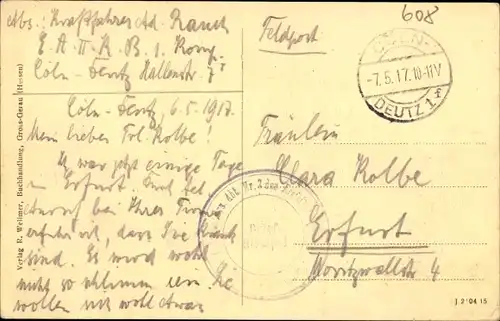 608
Abs: Kraftfahrer Ad. Rauch
E. A. II. K. B. 1. Komp.
Cöln-Deutz Hallenstr. 7
Feldpost
CÖLN-
-7.5.17.10-11V
DEUTZ 1f
Cöln-Deutz, 6.5.1917.
Mein liebes Frl. Kolbe!
Ich war jetzt einige Tage
in Erfurt. Und
bei Ihrer
erfuhr ich, dass Sie krank
sind. Es wird wohl
nicht so schlimm sein. Sie
wollen mich wohl etwas
Fräulein
Clara Kolbe
Erfurt
Moritzwallstr 4
Verlag R. Wellmer, Buchhandlung, Gross-Gerau (Hessen)
J. 2*04 15